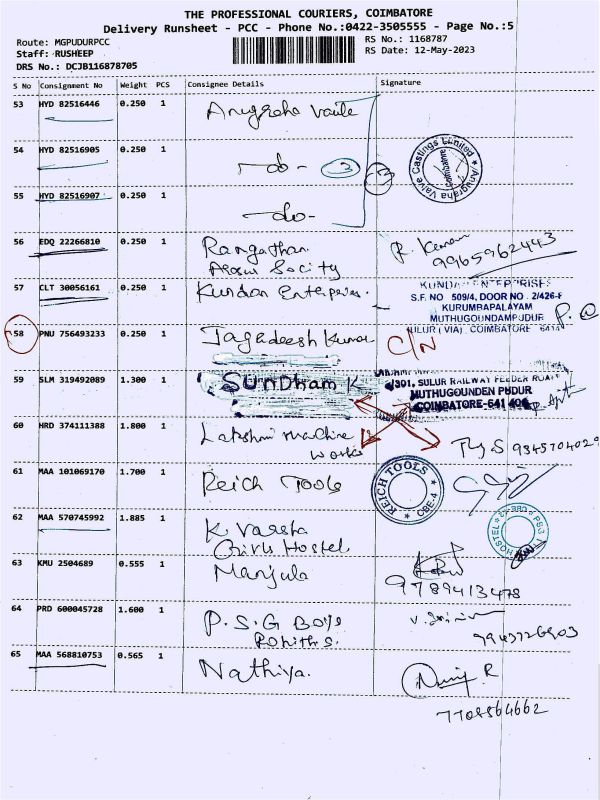 THE PROFESSIONAL COURIERS, COIMBATORE
Delivery Runsheet - PCC - Phone No.:0422-3505555 - Page No.:5
Route: MGPUDURPCC
Staff: RUSHEEP
DRS No.: DCJB116878705
RS No.: 1168787
RS Date: 12-May-2023
S No Consignment No Weight PCS Consignee Details Signature
53 HYD 82516446 0.250 1 Anugraha Valve
54 HYD 82516905 0.250 1 -do- 3 3
Anugraha Valve Castings Limited
COIMBATORE
55 HYD 82516907 0.250 1 -do-
56 EDQ 22266810 0.250 1 Ranganathan
Society
R. Kumar
9965962443
57 CLT 30056161 0.250 1 Kundan Enterprises
KUNDAN ENTERPRISES
S.F. NO 509/4, DOOR NO. 2/426-F
KURUMBAPALAYAM
MUTHUGOUNDAMPUDUR
SULUR (VIA) COIMBATORE 6414
58 PNU 756493233 0.250 1 Jagadeesh Kumar C/N
59 SLM 319492089 1.300 1 SUNDHAM K
/301, SULUR RAILWAY FEEDER ROAD
MUTHUGOUNDEN PUDUR
COIMBATORE-641 406
60 HRD 374111388 1.800 1 Lakshmi machine
works
9345704029
61 MAA 101069170 1.700 1 Reich Tools
REICH TOOLS
CBE-4
62 MAA 570745992 1.885 1 K Varsha
Girls Hostel
HOSTEL
63 KMU 2504689 0.555 1 Manjula
9789413478
64 PRD 600045728 1.600 1 P.S.G Boys
9943726903
65 MAA 568810753 0.565 1 Nathiya.
7708564662